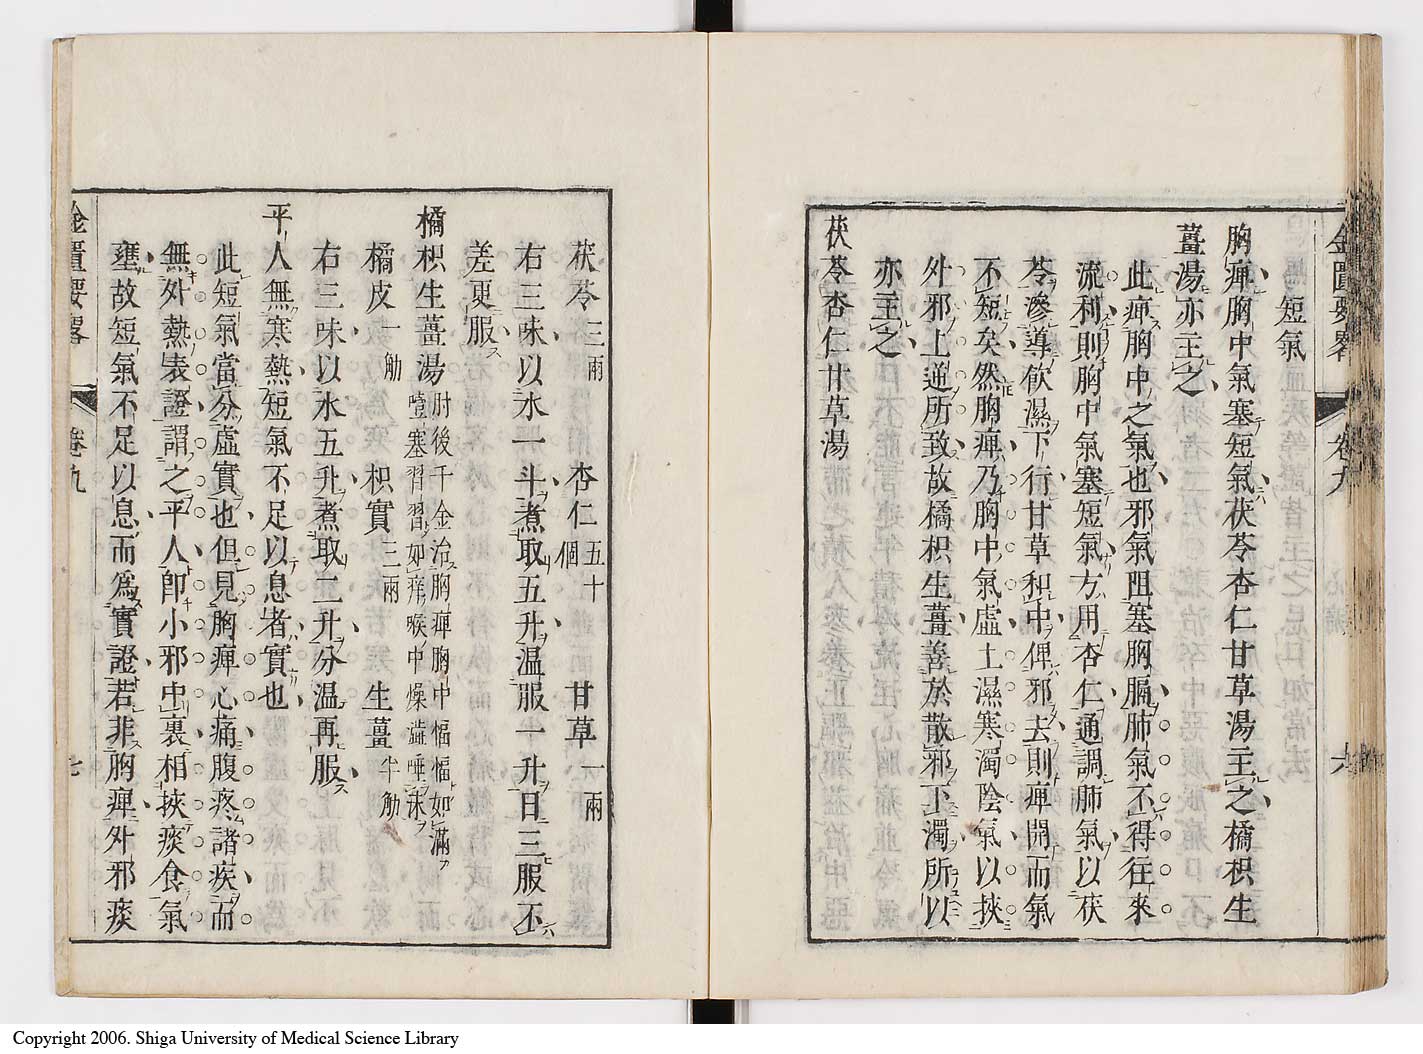 金匱要畧 卷九 六
短氣
胸痺胸中氣塞短氣茯苓杏仁甘草湯主之橘枳生
薑湯亦主之
此痺胸中之氣也邪氣阻塞胸膈肺氣不得往來
流利則胸中氣塞短氣方用杏仁通調肺氣以茯
苓滲導飮濕下行甘草和中俾邪去則痺開而氣
不短矣然胸痺乃胸中氣虛土濕寒濁陰氣以挾
外邪上逆所致故橘枳生薑善於散邪下濁所以
亦主之
茯苓杏仁甘草湯
茯苓三兩 杏仁五十個 甘草一兩
右三味以水一斗煮取五升温服一升日三服不
差更服
橘枳生薑湯肘後千金治胸痺胸中愊愊如滿
噎塞習習如痒喉中燥澁唾沫
橘皮一觔 枳實三兩 生薑半觔
右三味以水五升煮取二升分温再服
平人無寒熱短氣不足以息者實也
此短氣當分虛實也但見胸痺心痛腹疼諸疾而
無外熱表證謂之平人卽小邪中裏相挾痰食氣
壅故短氣不足以息而爲實證若非胸痺外邪痰
金匱要畧 卷九 七
Copyright 2006. Shiga University of Medical Science Library